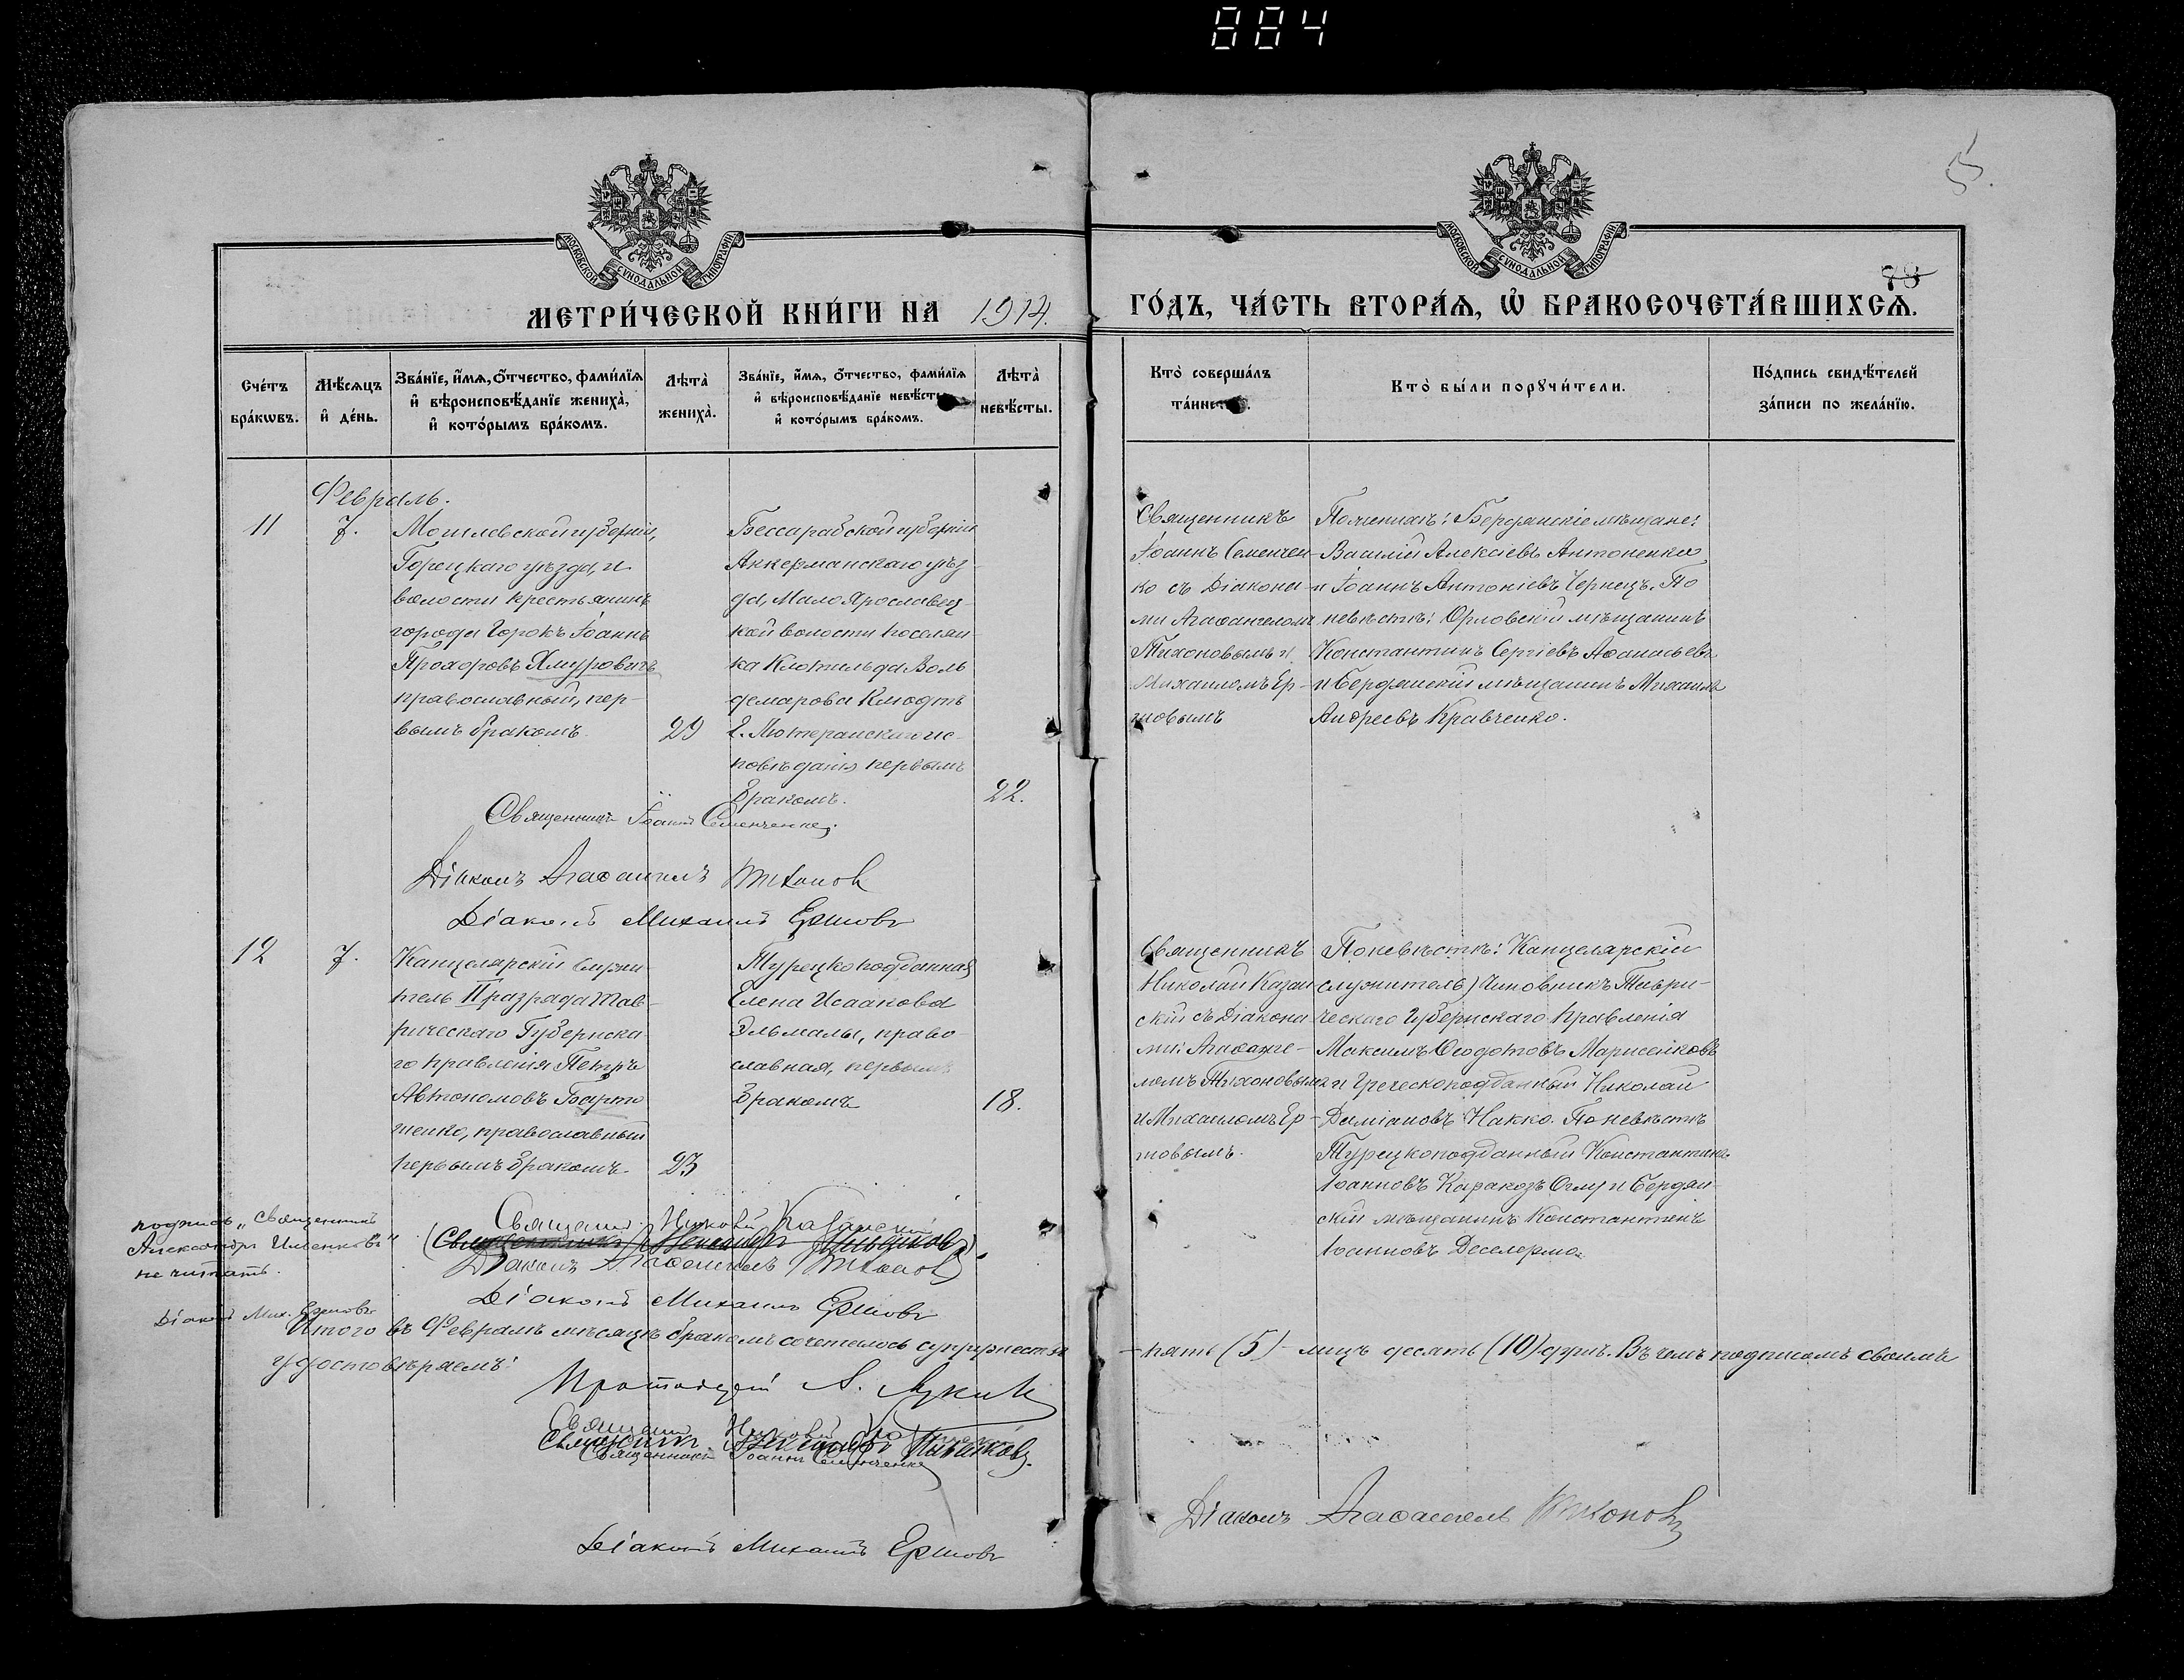 884
5.
МОСКОВСКОЙ СУНОДАЛЬНОЙ ТИПОГРАФІИ
МОСКОВСКОЙ СУНОДАЛЬНОЙ ТИПОГРАФІИ
78
МЕТРИ́ЧЕСКОЙ КНИ́ГИ НА 1914.
ГО́ДЪ, ЧА́СТЬ ВТОРА́Ѧ, Ѡ҆ БРАКОСОЧЕТА́ВШИХСѦ.
Сче́тъ
бра́кѡвъ.
Мѣ́сѧцъ
и҆ де́нь.
Зва́нїе, и҆́мѧ, о҆́тчество, фами́лїѧ
и҆ вѣроисповѣ́данїе жениха̀,
и҆ кото́рымъ бра́комъ.
Лѣта̀
жениха̀.
Зва́нїе, и҆́мѧ, о҆́тчество, фами́лїѧ
и҆ вѣроисповѣ́данїе невѣ́сты
и҆ кото́рымъ бра́комъ.
Лѣта̀
невѣ́сты.
Кто̀ соверша́лъ
та́инство.
Кто̀ бы́ли порꙋчи́тели.
По́дпись свидѣ́телей
за́писи по жела́нїю.
Февраль.
11
7.
Могилевской губерніи,
Горецкаго уѣзда, и
волости крестьянинъ
города Горокъ Іоаннъ
Прохоровъ Хмуровичъ
православный, пер-
вымъ бракомъ.
29
Бессарабской губерніи
Аккерманскаго уѣз-
да, Мало Ярославец-
кой волости поселян-
ка Клотильда Воль
демарова Клюдтъ
Е. Лютеранскаго ис-
повѣданія, первымъ
бракомъ.
22.
Священникъ
Іоаннъ Семенчен-
ко съ Діакона-
ми Агаѳангеломъ
Тихоновымъ и
Михаиломъ Ер-
шовымъ
По женихѣ: Бердянскіе мѣщане:
Василій Алексіевъ Антоненко
и Іоаннъ Антоніевъ Чернецъ. По
невѣстѣ: Орловскій мѣщанинъ
Константинъ Сергіевъ Аѳанасьевъ
и Бердянскій мѣщанинъ Михаилъ
Андреевъ Кравченко.
Священникъ Іоаннъ Семенченко.
Діаконъ Агаѳангелъ Тихонов
Діаконъ Михаилъ Ершовъ
12
7.
Канцелярскій служи-
тель II разряда Тав-
рическаго Губернска-
го правленія Петръ
Автономовъ Барто
шенко, православный
первымъ бракомъ.
23
Турецкоподданная
Елена Исаакова
Эльмалы, право
славная, первымъ
бракомъ
18.
Священникъ
Николай Казан
скій съ Діакона
ми: Агаѳанге-
ломъ Тихоновымъ
и Михаиломъ Ер-
шовымъ.
По невѣстѣ: Канцелярскій
служитель) Чиновникъ Таври-
ческаго Губернскаго Правленія
Максимъ Ѳеодотовъ
и Греческоподданный Николай
Даміановъ Накко. По невѣстѣ
Турецкоподданный Константинъ
Іоанновъ Каракозъ Оглу и Бердян-
скій мѣщанинъ Константинъ
Іоанновъ
Священ. Николай Казанскій
(Священникъ Александръ Ильенковъ)
Діаконъ Агаѳангелъ Тихонов
Діаконъ Михаилъ Ершовъ
подпись „Священникъ
Александръ Ильенковъ"
не читать.
Діаконъ Мих. Ершовъ
Итого въ Февралѣ мѣсяцѣ бракомъ сочеталось супружествъ
– пять (5) – лицъ десять (10) душъ. Въ чемъ подписомъ своимъ
удостовѣряемъ:
Протоіерей А.
Священ. Николай
Священникъ Александръ Ильенковъ.
Священникъ Іоаннъ Семенченко
Діаконъ Агаѳангелъ Тихоновъ
Діаконъ Михаилъ Ершовъ